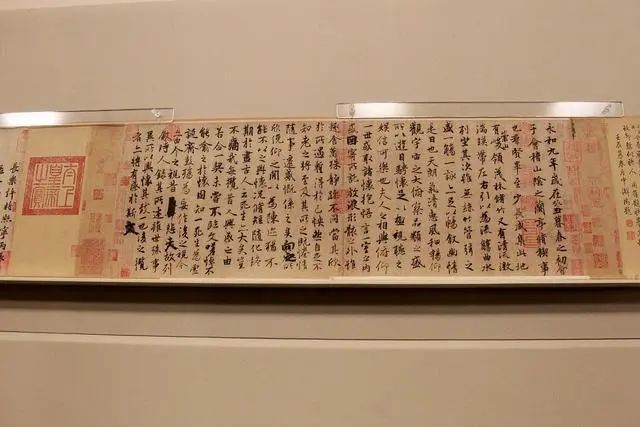 永和九年歲在癸丑暮春之初會
于會稽山陰之蘭亭脩稧事
也群賢畢至少長咸集此地
有崇山峻領茂林脩竹又有清流激
湍映帶左右引以為流觴曲水
列坐其次雖無絲竹管弦之
盛一觴一詠亦足以暢敘幽情
是日也天朗氣清惠風和暢仰
觀宇宙之大俯察品類之盛
所以遊目騁懷足以極視聽之
娛信可樂也夫人之相與俯仰
一世或取諸懷抱悟言一室之內
或因寄所託放浪形骸之外雖
趣舍萬殊靜躁不同當其欣
於所遇暫得於己怏然自足不
知老之將至及其所之既惓情
隨事遷感慨係之矣向之所
欣俛仰之閒以為陳迹猶不
能不以之興懷況脩短隨化終
期於盡古人云死生亦大矣豈
不痛哉每攬昔人興感之由
若合一契未嘗不臨文嗟悼不
能喻之於懷固知一死生為虛
誕齊彭殤為妄作後之視今
亦由今之視昔悲夫故列
敘時人錄其所述雖世殊事
異所以興懷其致一也後之攬
者亦將有感於斯文
長樂許將熙寧丙辰